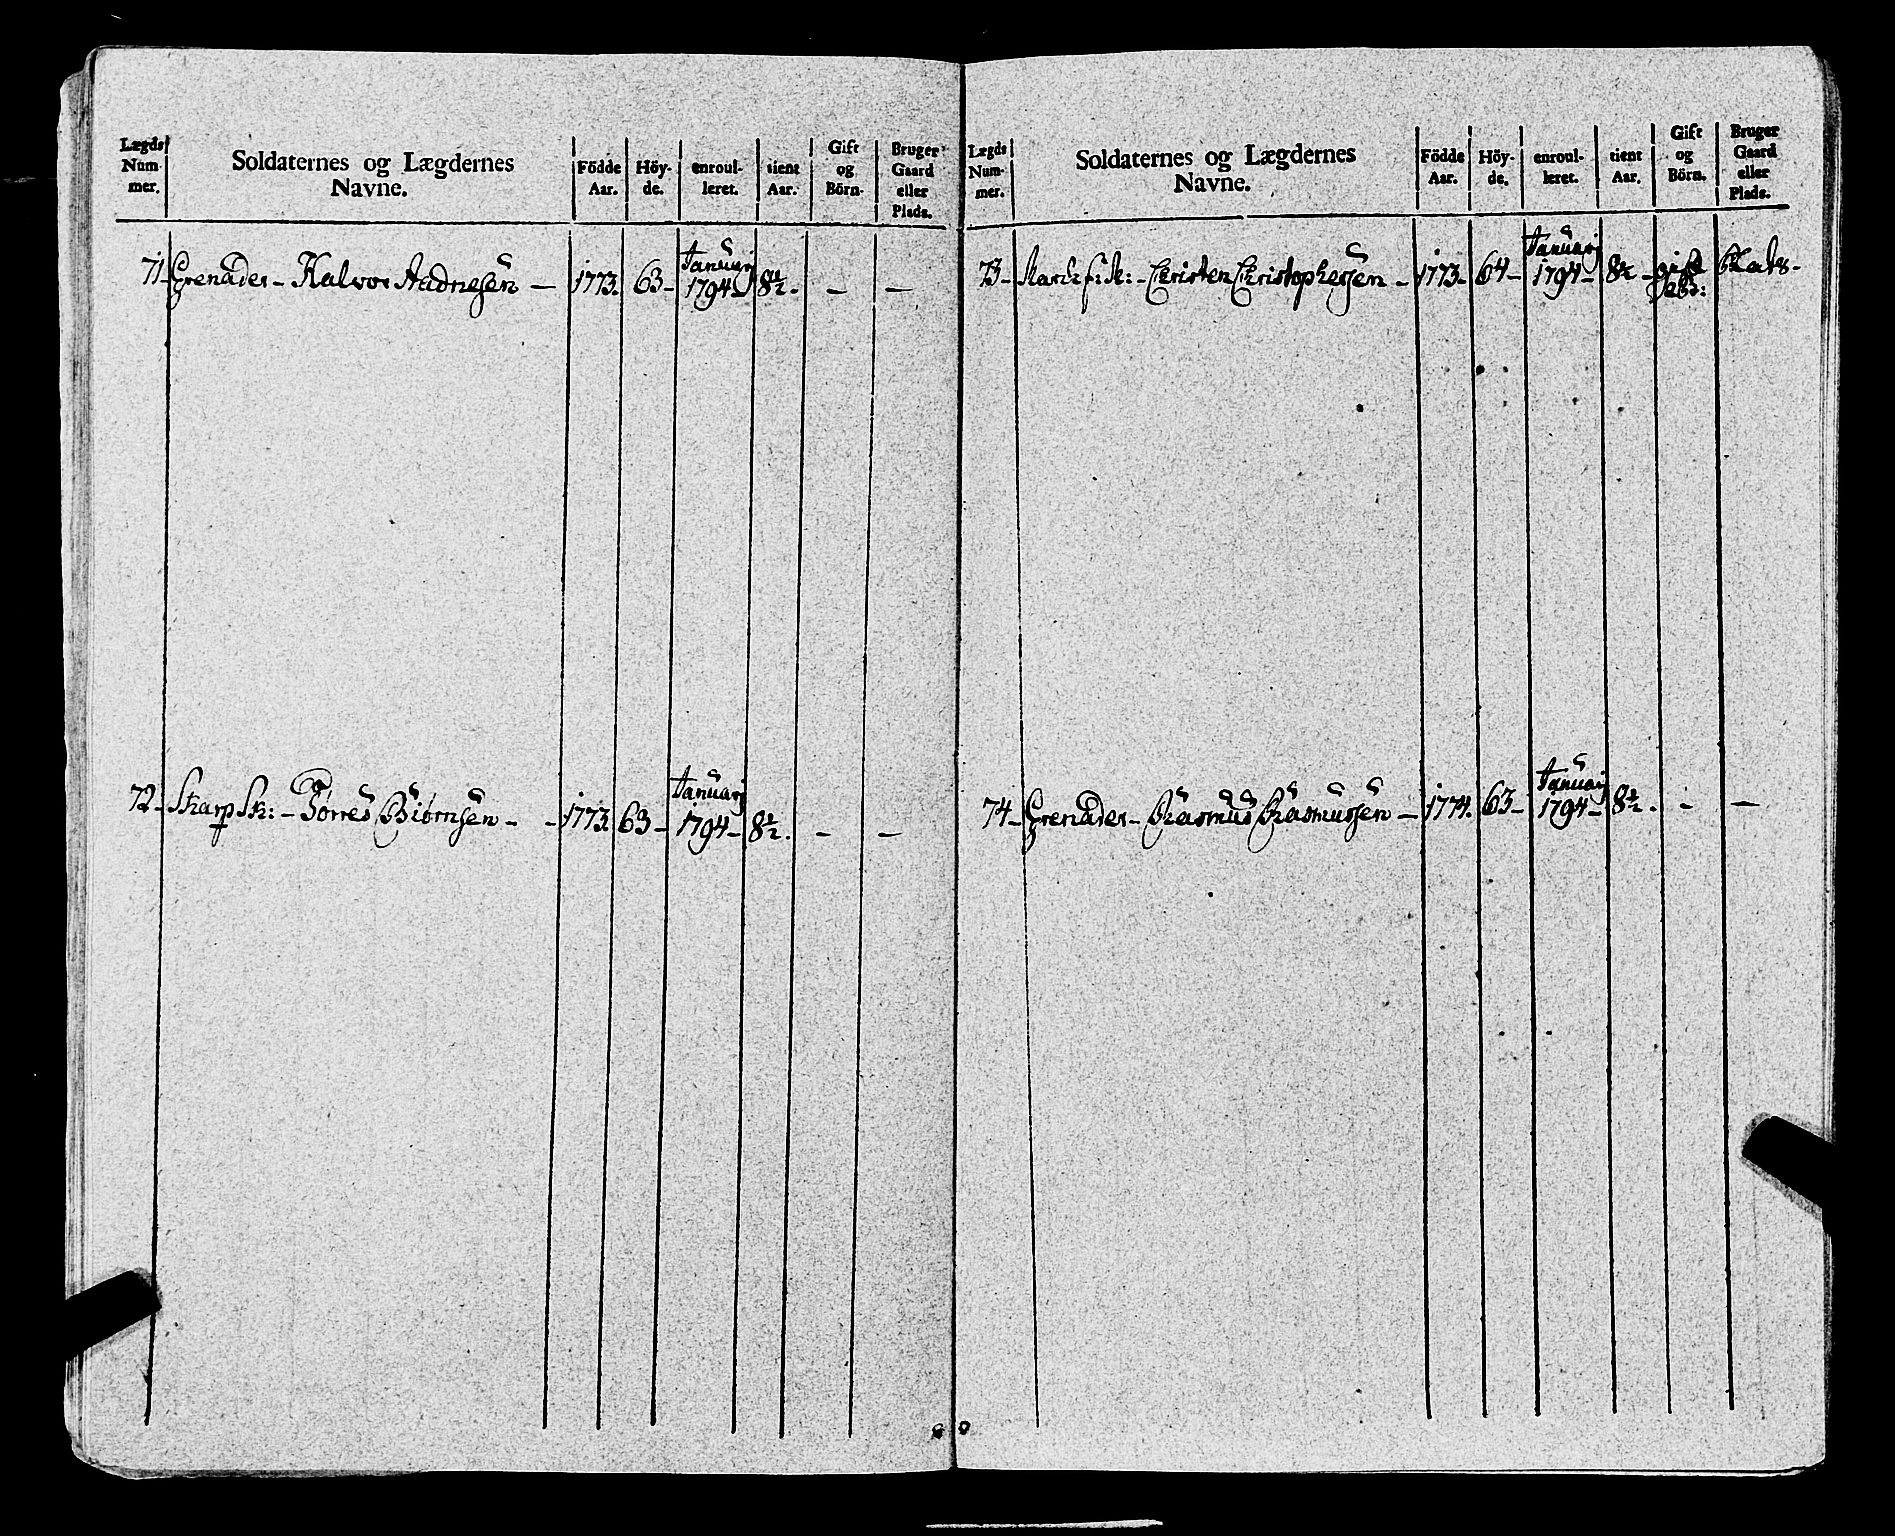 Lægds Num- mer. Soldaternes og Lægdernes Navne. Födde Aar. Höy- de. enroul- leret. tient Aar. Gift og Börn. Bruger Gaard eller Plads.
71 Grenadeer - Halvor Aadnesen - 1773. 63 - Januarj 1794 - 8½. - -
72 - Skarpsk: - Tørres Biørnsen - - 1773. 63 - Januarj 1794 - 8½. - -
Lægds Num- mer. Soldaternes og Lægdernes Navne. Födde Aar. Höy- de. enroul- leret. tient Aar. Gift og Börn. Bruger Gaard eller Plads.
73 - Christen Christophersen - 1773 - 64 - Januarj 1794 - 8½ - gift Plads -
74 - Grenadeer - Rasmus Rasmussen - 1774. 63 - Januarj 1794 - 8½. - -